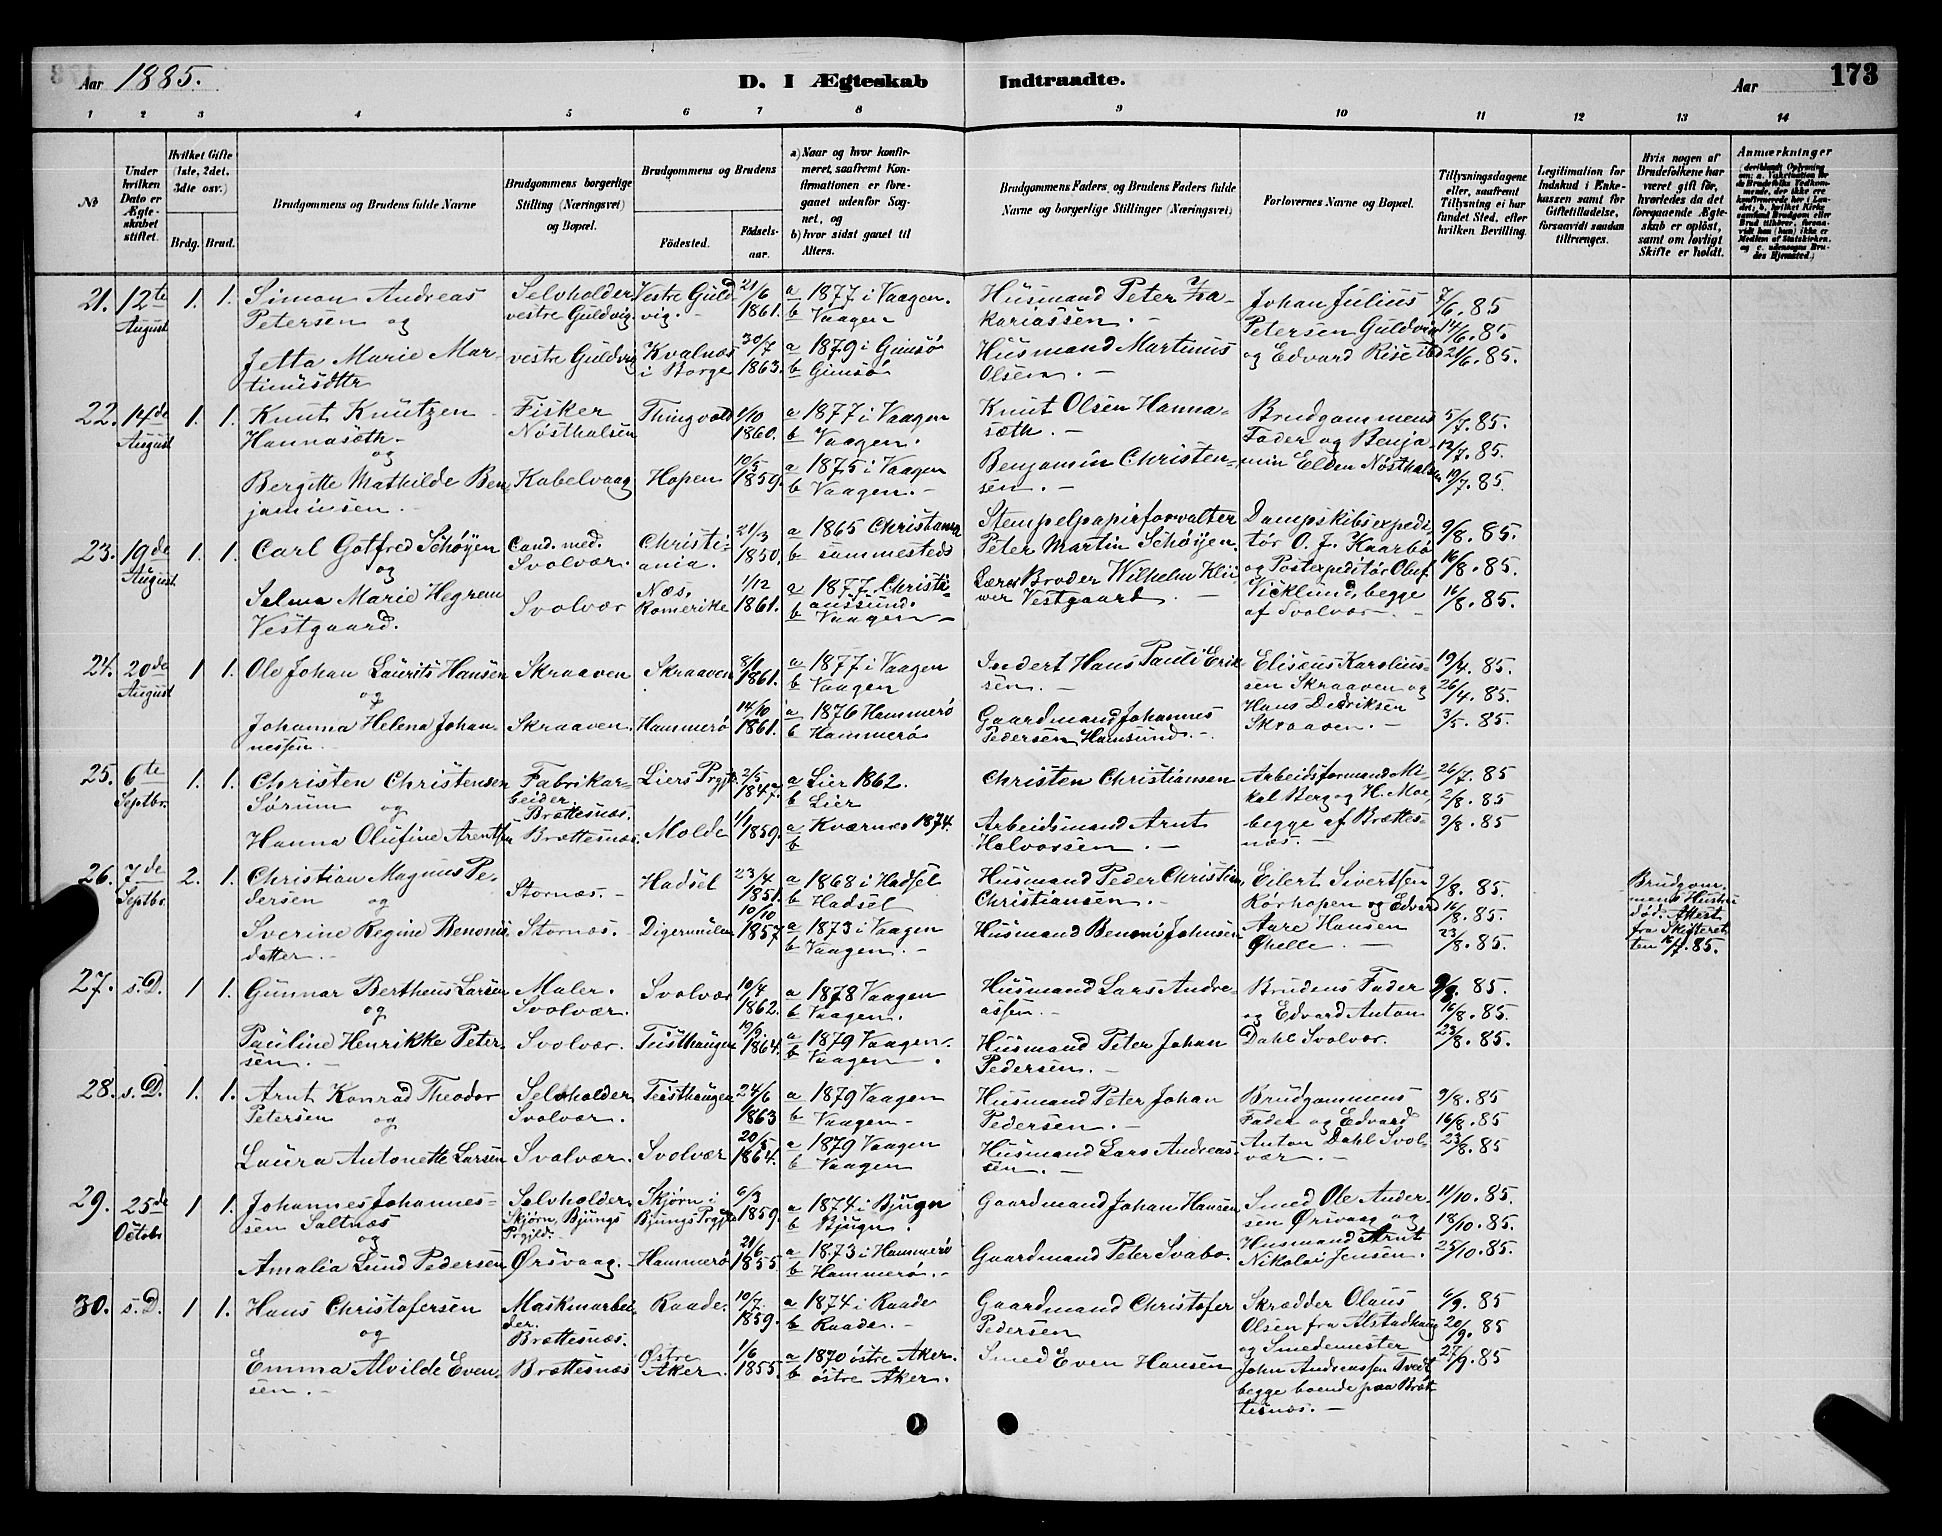 Aar 1885.
D. I Ægteskab Indtraadte.
Aar
173
1 2 3 4 5 6 7 8 9 10 11 12 13 14
№
Under hvilken Dato er Ægteskabet stiftet.
Hvilket Gifte (1ste, 2det, 3die osv.)
Brdg. Brud.
Brudgommens og Brudens fulde Navne
Brudgommens borgerlige Stilling (Næringsvei) og Bopæl.
Brudgommens og Brudens
Fødested.
Fødselsaar.
a) Naar og hvor konfirmeret, saafremt Konfirmationen er foregaaet udenfor Sognet, og
b) hvor sidst gaaet til Alters.
Brudgommens Faders, og Brudens Faders fulde Navne og borgerlige Stillinger (Næringsvei)
Forlovernes Navne og Bopæl.
Tillysningsdagene eller, saafremt Tillysning ei har fundet Sted, efter hvilken Bevilling.
Legitimation for Indskud i Enkekassen samt for Giftetilladelse, forsaavidt saadan tiltrænges.
Hvis nogen af Brudefolkene har været gift før, hvorledes da det foregaaende Ægteskab er opløst, samt om lovligt Skifte er holdt.
Anmærkninger
21. 12te August 1. 1.
Simon Andreas Petersen og
Selvholder vestre Guldvig.
Vestre Guldvig.
21/6 1861.
a 1877 i Vaagen.
b Vaagen
Husmand Peter Zakariassen.
Johan Julius Petersen Guldvig og Edvard Rise
7/6. 85
14/6. 85.
21/6. 85.
Jetta Marie Martinusdttr
vestre Guldvig
Kvalnæs i Borge
30/7 1863.
a 1879 i Gimsø
b Gimsø
Husmand Martinus Olsen.
22. 14de August 1. 1.
Knut Knutzen Hannasæth og
Fisker Nøstholsen
Thingvold
1/10 1860.
a 1877 i Vaagen
b Vaagen.
Knut Olsen Hannasæth.
Brudgommens Fader og Benjamin Elden Nøstholsen
5/7. 85.
12/7. 85.
19/7. 85.
Bergitte Mathilde Benjaminsen.
Kabelvaag
Hopen
10/5 1859.
a 1875 i Vaagen
b Vaagen.
Benjamin Christensen.
23. 19de August 1. 1.
Carl Gotfred Schøyen og
Cand. med. Svolvær.
Christiania.
21/3 1850.
a 1865 Christiania
b sammesteds
Stempelpapirforvalter Peter Martin Schøyen.
Dampskibsexpeditør O. J. Kaarbø og Postexpeditør Oluf Vicklund, begge af Svolvær.
9/8. 85.
16/8. 85.
16/8. 85.
Selma Marie Hegrem Vestgaard.
Svolvær
Næs, Romerike
1/12 1861.
a 1877 Christianssund.
b Vaagen
Lærer Broder Wilhelm Klüwer Vestgaard
24. 20de August 1 1.
Ole Johan Laurits Hansen og
Skraaven
Skraaven
8/1 1861.
a 1877 i Vaagen
b Vaagen
Inderst Hans Pauli Eriksen.
Eliseus Karoliussen Skraaven og Hans Dedriksen Skraaven.
19/4. 85.
26/4. 85.
3/5. 85.
Johanna Helena Johannessen.
Skraaven.
Hammerø
14/10 1861.
a 1876 Hammerø
b Hammerø
Gaardmand Johannes Pedersen Hamsund.
25. 6te Septbr. 1. 1.
Christen Christensen Sørum og
Fabrikarbeider, Brettesnæs.
Liers Prgjld.
2/5 1847.
a Lier 1862.
b Lier
Christen Christiansen
Arbeidsformand Mikal Berg og H. Moe, begge af Brettesnæs.
26/7. 85
2/8. 85
9/8. 85
Hanna Olufine Arentsen
Brettesnæs.
Molde
1/1 1859.
a Kværnæs 1874.
b
Arbeidsmand Arnt Halvorsen.
26. 7de Septbr. 2. 1.
Christian Magnus Pedersen og
Stornæs.
Hadsel
23/4 1851.
a 1868 i Hadsel
b Hadsel
Husmand Peder Christian Christiansen.
Eilert Sivertsen Rørhopen og Edvard Aare Hansen Ghelle.
9/8. 85.
16/8. 85.
23/8. 85.
Brudgommens Hustru død. Attest fra Skifteretten 16/7. 85.
Sverine Regine Benonisdatter.
Stornæs.
Digermulen
10/10 1857.
a 1873 i Vaagen
b Vaagen.
Husmand Benoni Johnsen
27. s. D. 1 1.
Gunnar Bertheus Larsen og
Maler. Svolvær.
Svolvær
10/4 1862.
a 1878 Vaagen
b Vaagen.
Husmand Lars Andreassen.
Brudens Fader og Edvard Anton Dahl Svolvær.
9/8. 85.
16/8. 85.
23/8. 85.
Pauline Henrikke Petersen.
Svolvær.
Teisthaugen
19/9. 1864.
a 1879 Vaagen.
b Vaagen.
Husmand Peter Johan Pedersen.
28. s. D. 1. 1.
Arnt Konrad Theodor Petersen og
Selvholder Svolvær.
Teisthaugen
24/6 1863
a 1879 Vaagen
b Vaagen
Husmand Peter Johan Pedersen.
Brudgommens Fader og Edvard Anton Dahl Svolvær.
9/8. 85
16/8. 85
23/8. 85
Laura Antonette Larsen
Svolvær.
Svolvær
20/5 1864.
a 1879 Vaagen
b Vaagen
Husmand Lars Andreassen.
29. 25de Octobr 1 1.
Johannes Johannessen Saltnæs og
Selvholder Skjørn, Bjungs Prgjld.
Skjørn i Bjungs Prgjld.
6/3 1859.
a 1874 i Bjugn
b Bjugn.
Gaardmand Johan Hansen
Smed Ole Andersen Ørsvaag og Husmand Arnt Nikolai Jensen.
11/10. 85.
18/10. 85.
25/10. 85.
Amalia Lund Pedersen
Ørsvaag.
Hammerø
21/6. 1855
a 1873 i Hammerø
b Hammerø.
Gaardmand Peter Svabo.
30. s. D. 1 1.
Hans Christofersen og
Maskinarbeider. Brettesnæs.
Raade.
10/7. 1859.
a 1874 i Raade
b Raade.
Gaardmand Christofer Pedersen
Skrædder Olaus Olsen fra Alstadhaug og Smedemester John Andreassen Tvedt begge boende paa Brettesnæs.
6/9. 85
20/9. 85
27/9. 85
Emma Alvilde Evensen.
Brettesnæs
Østre Aker.
1/6 1855.
a 1870 østre Aker.
b østre Aker.
Smed Even Hansen